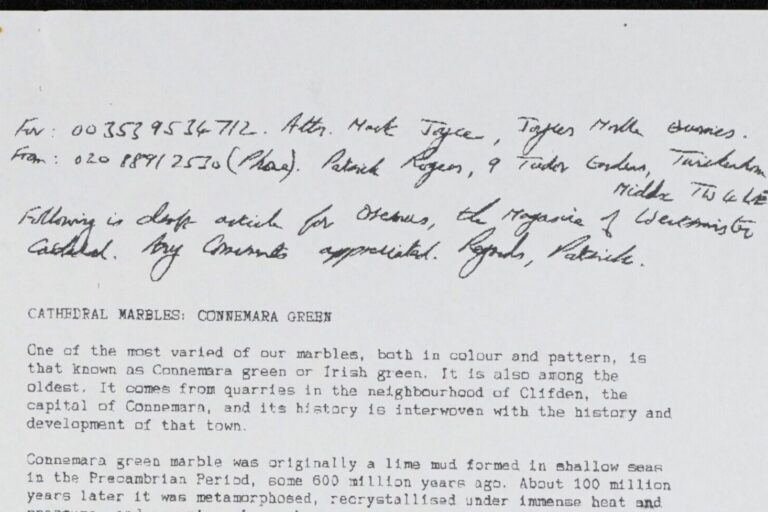 For: 00353 9534712. Attn. Mark Joyce, Joyces Marble Quarries.
From: 020 88912530 (Phone). Patrick Rogers, 9 Tudor Gardens, Twickenham
Middx TW1
Following is draft article for Oremus, the Magazine of Westminster
Cathedral. Any Comments appreciated. Regards, Patrick.
CATHEDRAL MARBLES: CONNEMARA GREEN
One of the most varied of our marbles, both in colour and pattern, is
that known as Connemara green or Irish green. It is also among the
oldest. It comes from quarries in the neighbourhood of Clifden, the
capital of Connemara, and its history is interwoven with the history and
development of that town.
Connemara green marble was originally a lime mud formed in shallow seas
in the Precambrian Period, some 600 million years ago. About 100 million
years later it was metamorphosed, recrystallised under immense heat and